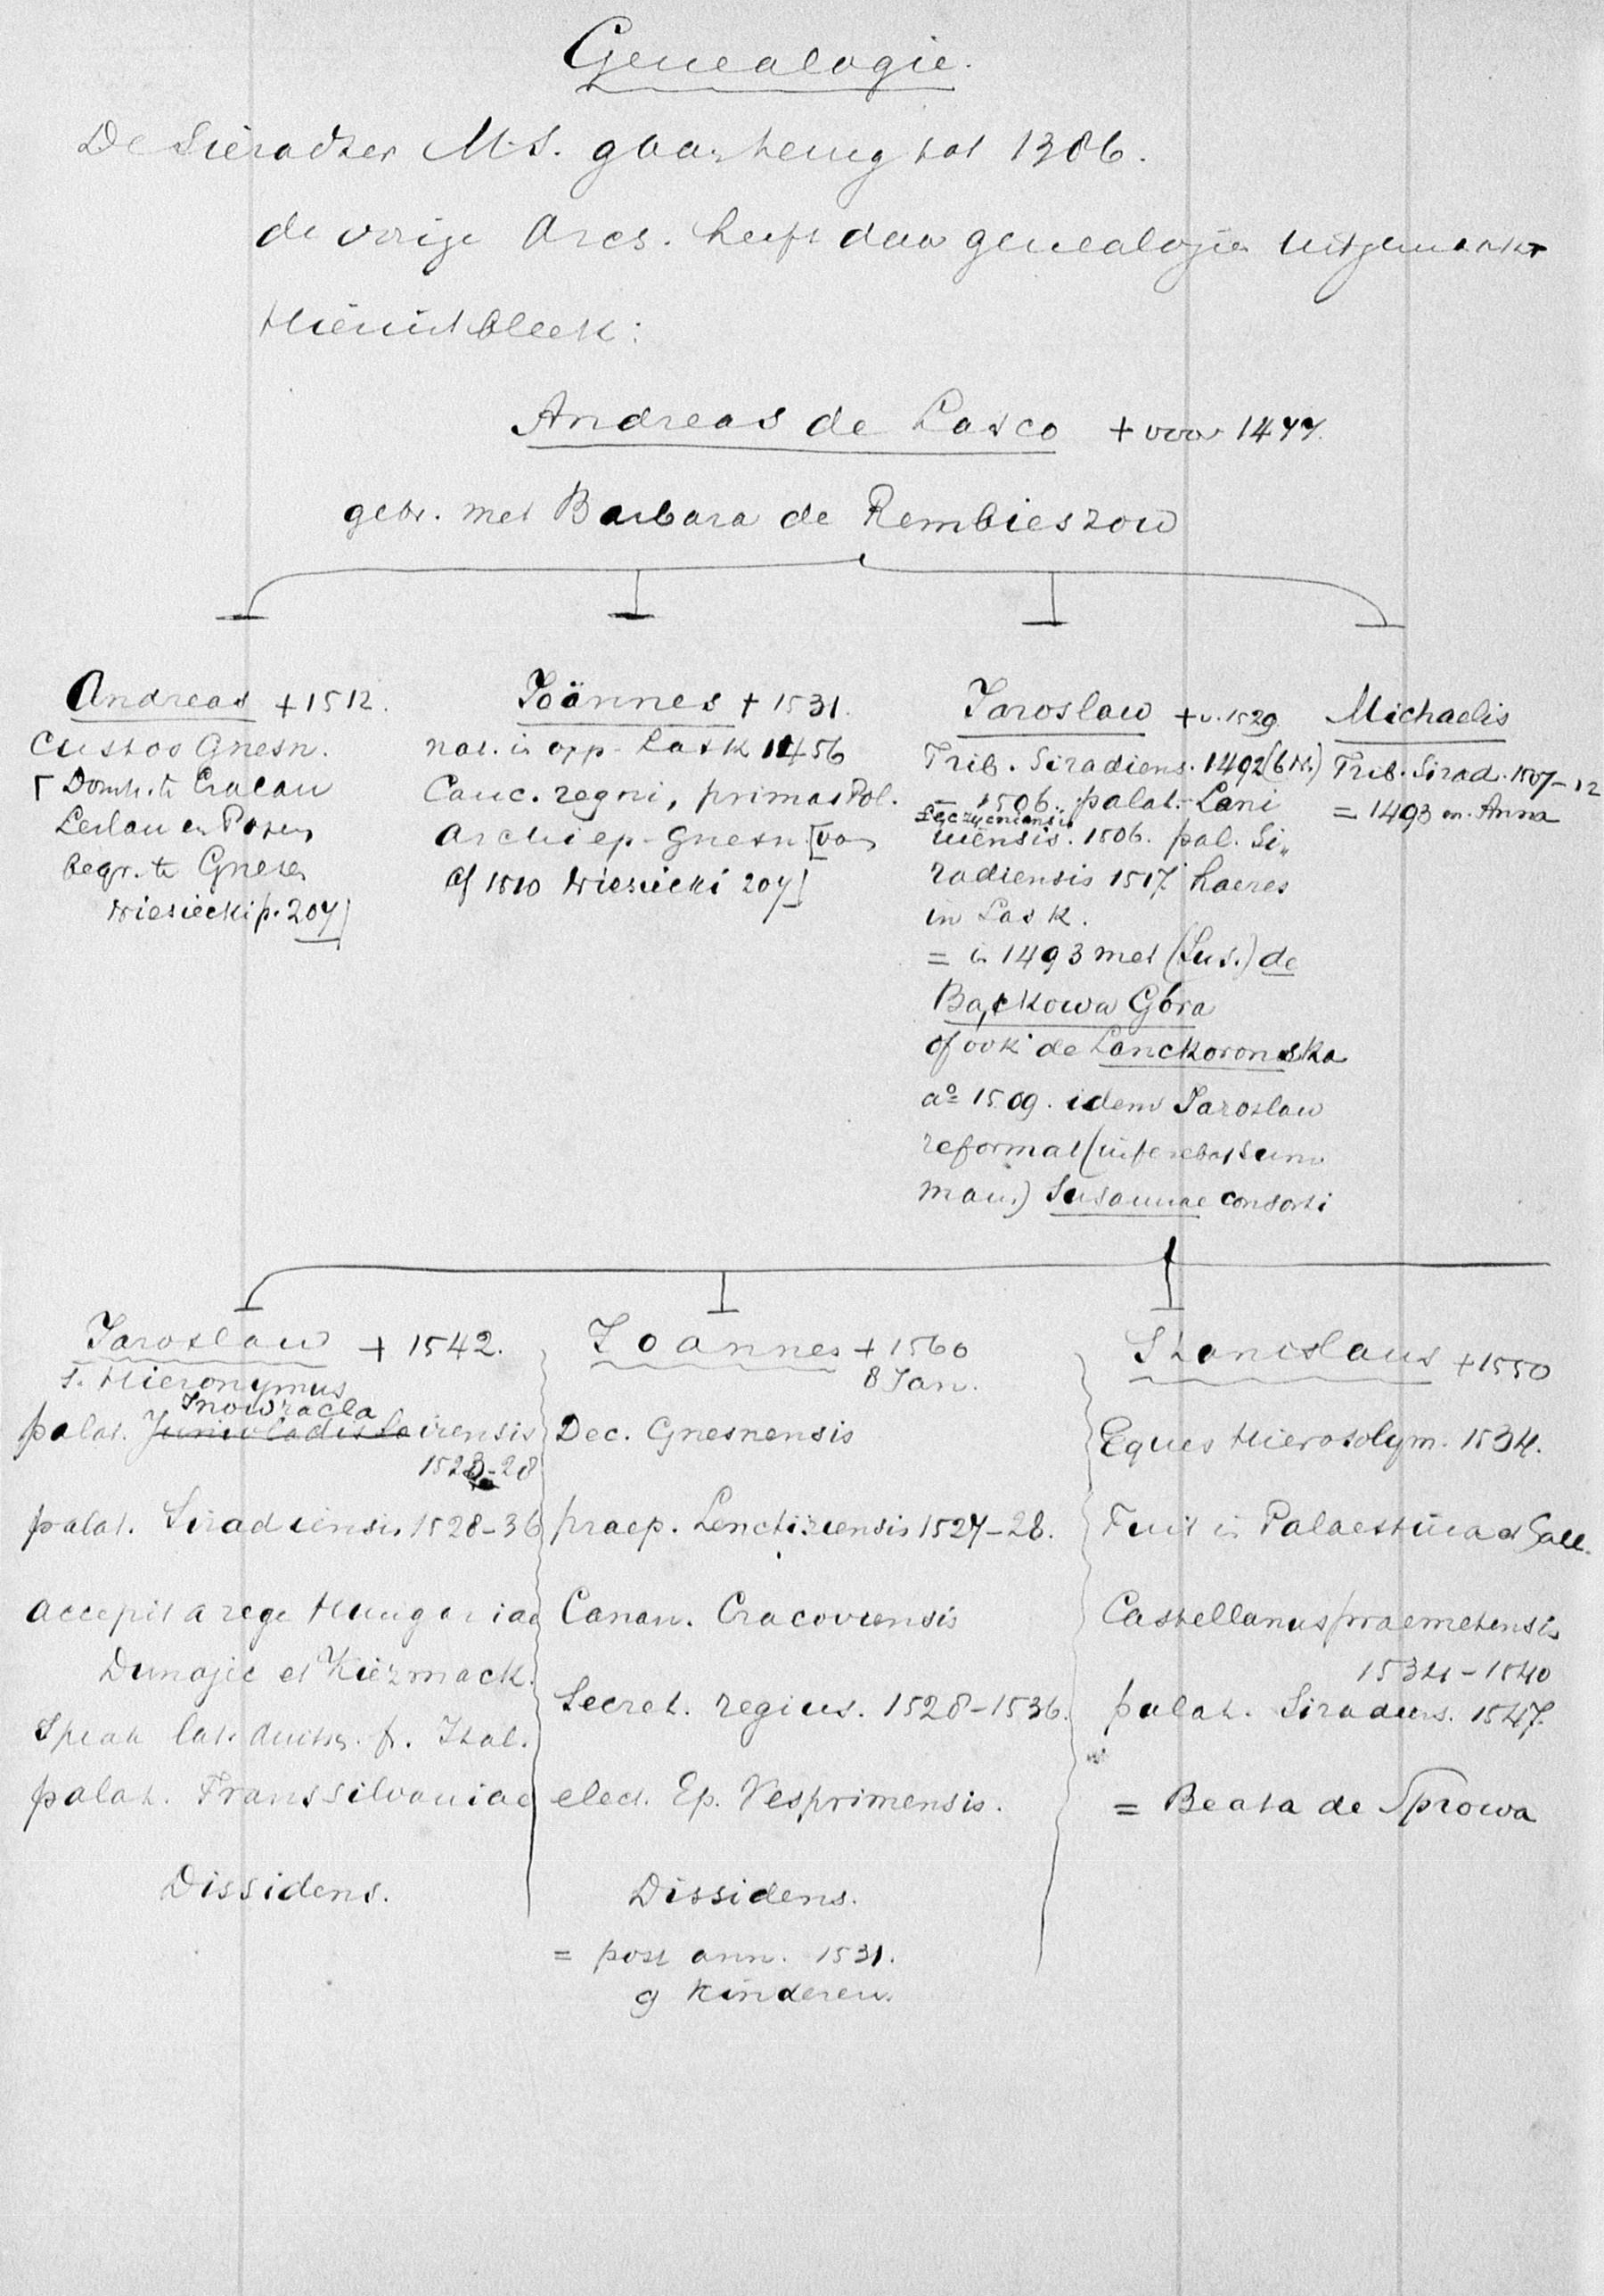 Genealogie.
De Sieradzer M.S. gaan terug tot 1386.
de vorige Arch. heeft daar genealogie uitgemaakt
Hieruit bleek:
Andreas de Lasco + voor 1477.
getr. met Barbara de Rembieszow
Andreas + 1512.
Custos Gnesn.
[Domh. te Cracau
Leslau en Posen
begr. te Gnesen
Niesiecki p. 207]
Joännes + 1531.
nat. in opp. Lask 1456
Canc. regni, primas Pol.
Archiep. Gnesn. [van
af 1510 Niesiecki 207]
Jaroslaw + v. 1529
Trib. Siradiens. 1492 (b.N.)
– 1506. palat. Lani
Łęczycniensis
ciensis. 1506. pal. Si„
radiensis 1517. haeres
in Lask.
= in 1493 met (Sus.) de
Bąckowa Góra
of ook de Lanckoronska
aº 1509. idem Jaroslaw
reformat (
man.) Susannae consorti
Michaelis
Trib. Sirad. 1507–12
= 1493 m. Anna
Jaroslaw + 1542.
s. Hieronymus
Inowracla
palat. Juniwladislaviensis
1523–28
palat. Siradiensis 1528–36
accepit a rege Hungariae
Dunajic et Kiezmack.
Sprak lat. duitsch. fr. Ital.
palat. Transsilvaniae
Dissidens.
Joannes + 1560
8 Jan.
Dec. Gnesnensis
praep. Lenctiziensis 1527–28.
Canon. Cracoviensis
Secret. regius. 1528–1536.
elect. Ep. Vesprimensis.
Dissidens.
= post ann. 1531.
9 Kinderen.
Stanislaus + 1550
Eques Hierosolym. 1534.
Fuit in Palaestina et Gall.
Castellanus praemetensis
1534–1540
palat. Siradiens. 1547.
= Beata de Sprowa